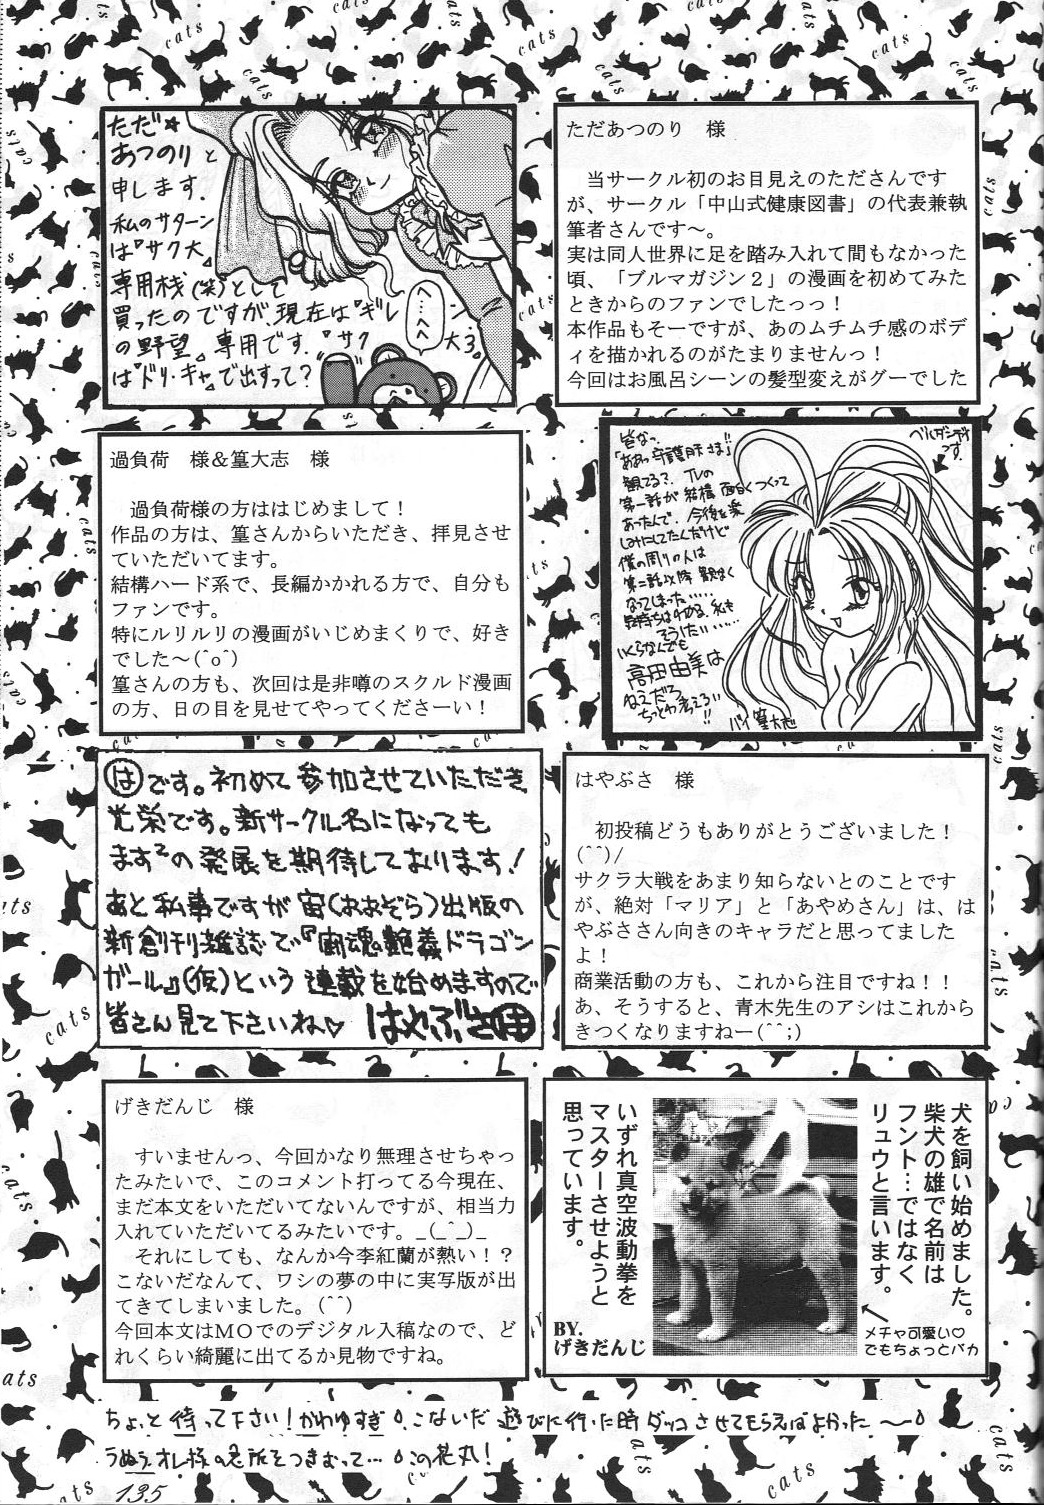 ただ★
あつのりと
申します.
私のサターン
は『サクラ大』
専用機(笑)として
買ったのですが、現在は『ギレン
の野望』専用です.『サクラ大3』
は『ドリ・キャ』で出すって?
へ…へへ
ただあつのり　様
　当サークル初のお目見えのたださんです
が、サークル「中山式健康図書」の代表兼執
筆者さんです〜。
実は同人世界に足を踏み入れて間もなかった
頃、「ブルマガジン２」の漫画を初めてみた
ときからのファンでしたっっ！
本作品もそーですが、あのムチムチ感のボデ
ィを描かれるのがたまりませんっ！
今回はお風呂シーンの髪型変えがグーでした
過負荷　様＆篁大志　様
　過負荷様の方ははじめまして！
作品の方は、篁さんからいただき、拝見させ
ていただいてます。
結構ハード系で、長編かかれる方で、自分も
ファンです。
特にルリルリの漫画がいじめまくりで、好き
でした〜(^o^)
篁さんの方も、次回は是非噂のスクルド漫画
の方、日の目を見せてやってくださーい！
皆なっ
「ああっ守護月天さま」!!
観てる?. TVの
第一話が結構面白くつくって
あったんで. 今後を楽
しみにしてたんだけど
僕の周りの人は
第二話以降観なく
なってしまった……
気持ちはわかる、私も
そうしたい……
いくらなんでも
高田由美は
ねぇだろ
ちっとわ考えろい
!!
バイ篁大志
ベルダンディ
です.
はです。初めて参加させていただき
光栄です。新サークル名になっても
ます²の発展を期待しております！
あと私事ですが宙(おおぞら)出版の
新創刊雑誌で『宙魂艶義ドラゴン
ガール』(仮)という連載を始めますので
皆さん見て下さいね♡ はやぶさ
はやぶさ　様
　初投稿どうもありがとうございました！
(^^)/
サクラ大戦をあまり知らないとのことです
が、絶対「マリア」と「あやめさん」は、は
やぶささん向きのキャラだと思ってました
よ！
商業活動の方も、これから注目ですね！！
あ、そうすると、青木先生のアシはこれから
きつくなりますねー(^^;)
げきだんじ　様
　すいませんっ、今回かなり無理させちゃっ
たみたいで、このコメント打ってる今現在、
まだ本文をいただいてないんですが、相当力
入れていただいてるみたいです。_(_^_)_
　それにしても、なんか今李紅蘭が熱い！？
こないだなんて、ワシの夢の中に実写版が出
てきてしまいました。(^^)
今回本文はＭＯでのデジタル入稿なので、ど
れくらい綺麗に出てるか見物ですね。
犬を飼い始めました。
柴犬の雄で名前は
フント…ではなく
リュウと言います。
メチャ可愛い♡
でもちょっとバカ
いずれ真空波動拳を
マスターさせようと
思っています。
BY.
げきだんじ
ちょっと待って下さい！かわゆすぎ。こないだ遊びに行った時ダッコさせてもらえばよかった〜。
うぬぅ、オレ様の急所をつきむって…。この花丸！
135
cats